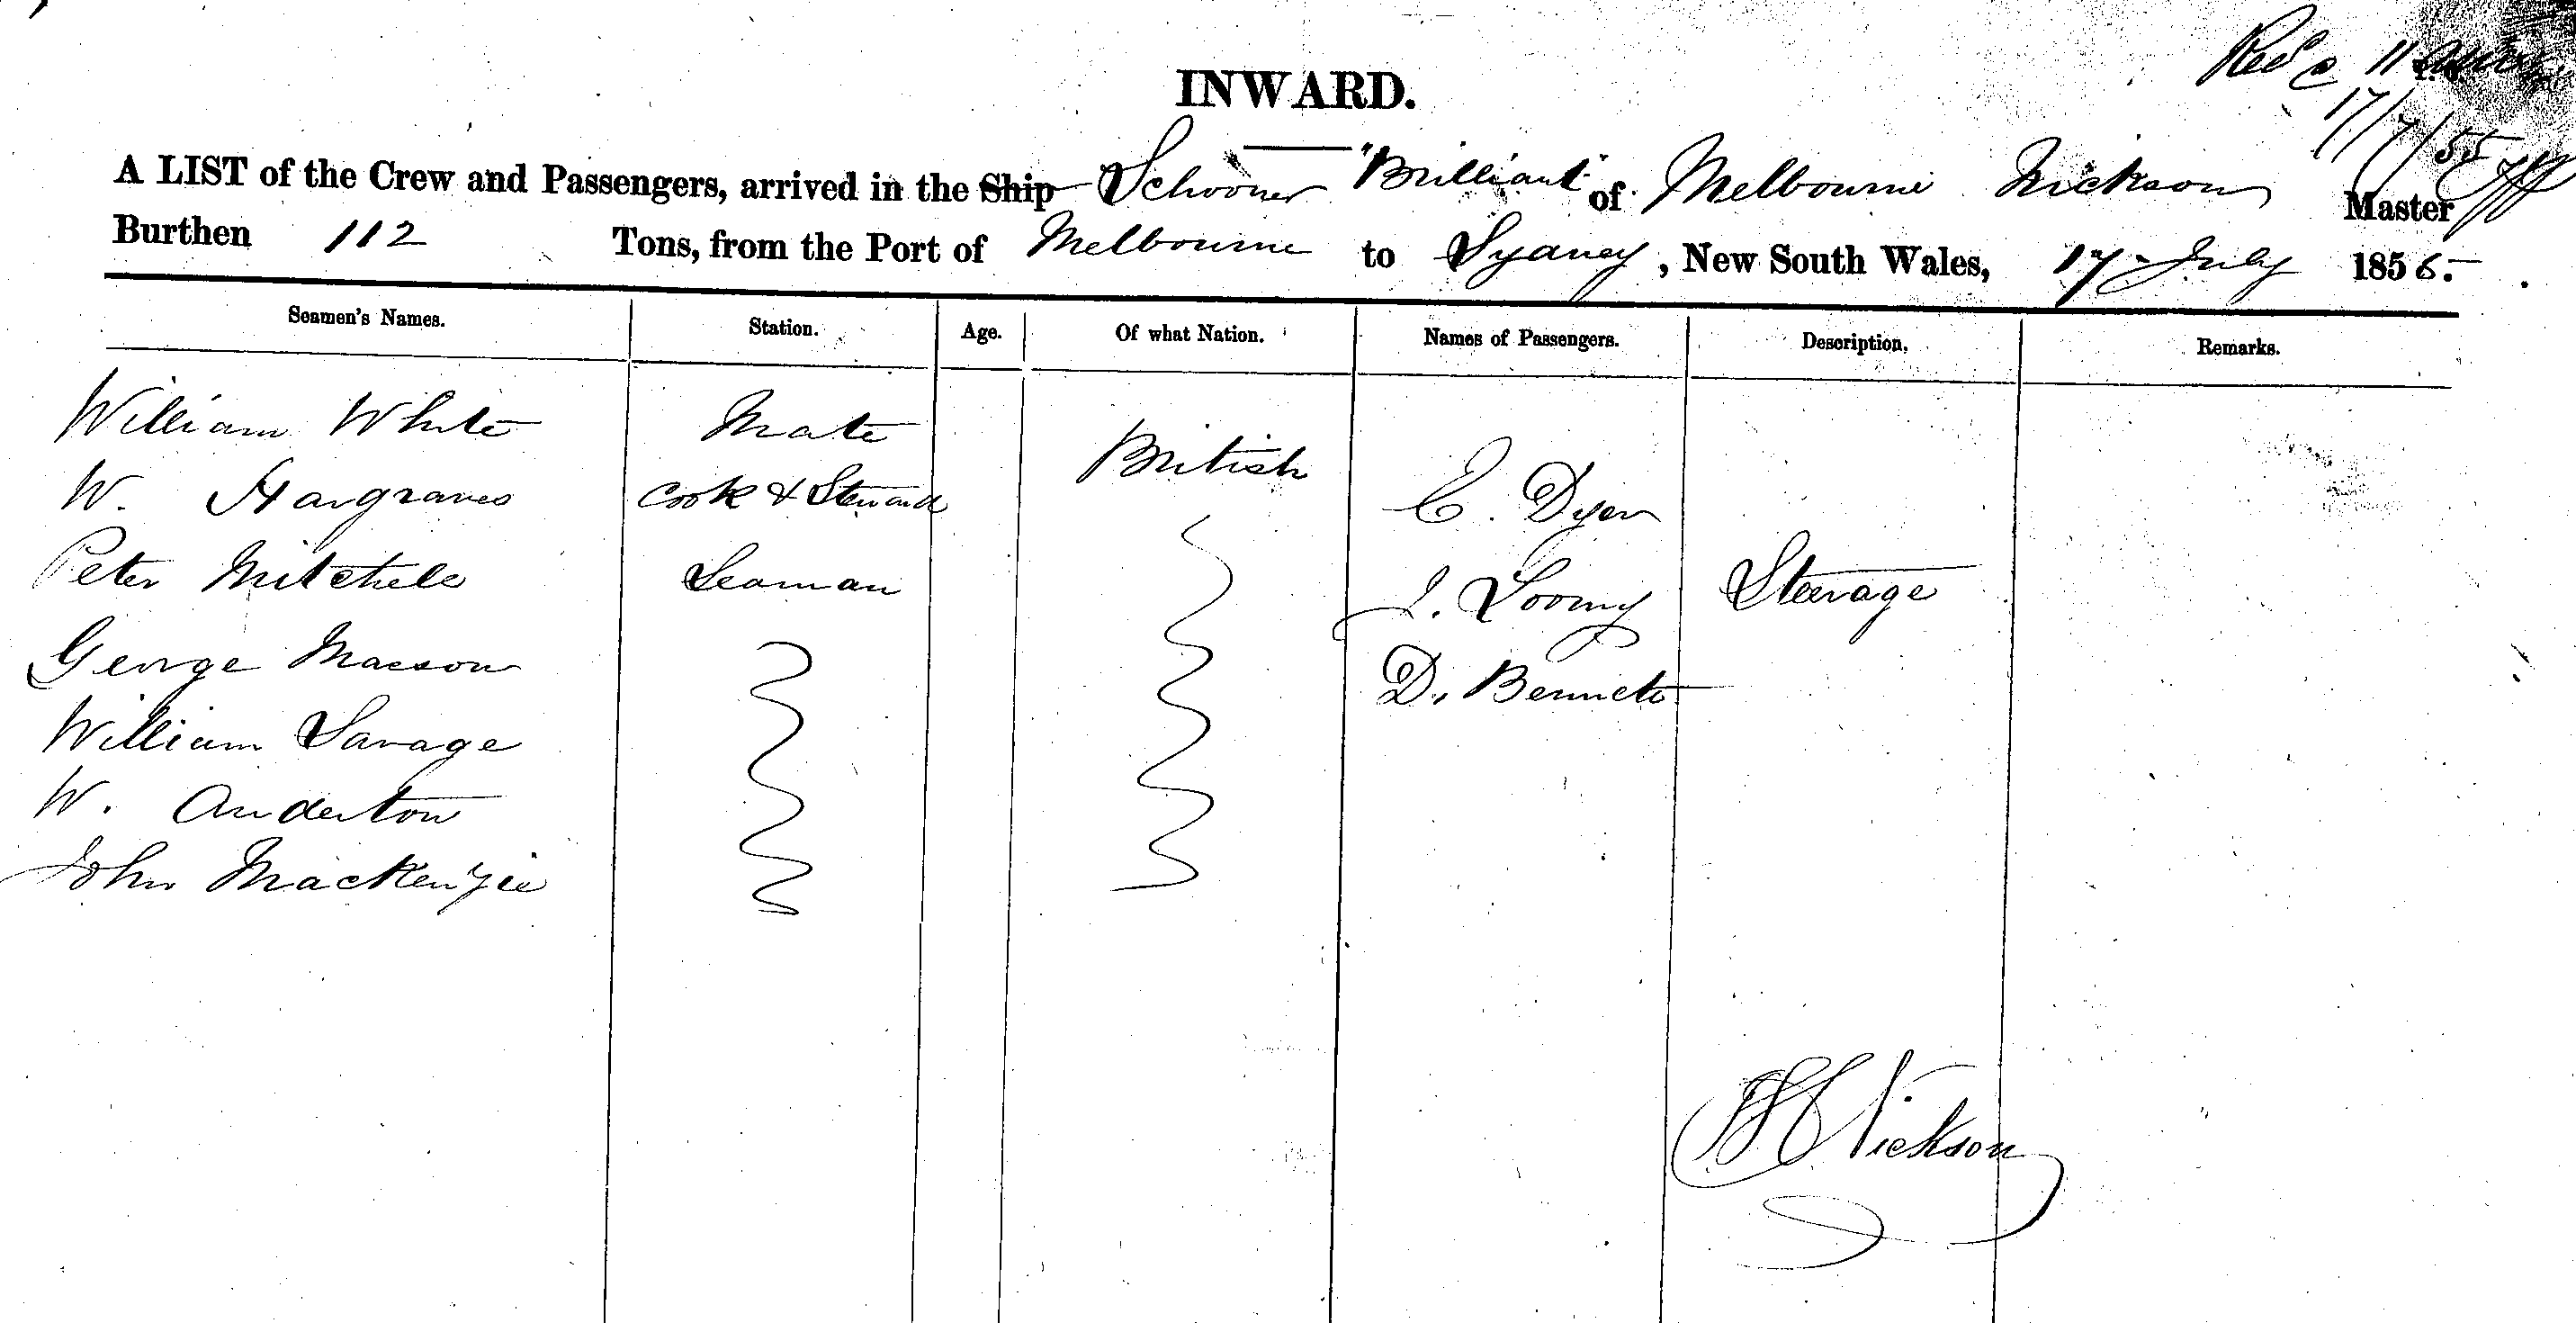 Recd 11
17/7/55
INWARD.
A LIST of the Crew and Passengers, arrived in the Ship Schooner "Brilliant" of Melbourne Nickson Master
Burthen 112 Tons, from the Port of Melbourne to Sydney, New South Wales, 17 July 1855.
Seamen's Names. Station. Age. Of what Nation. Names of Passengers. Description. Remarks.
William White Mate British
W. Hargraves Cook & Steward C. Dyer
Peter Mitchell Seaman J. Loomy Steerage
George Maeson D. Bennett
William Savage
W. Anderton
John Mackenzie
Nickson